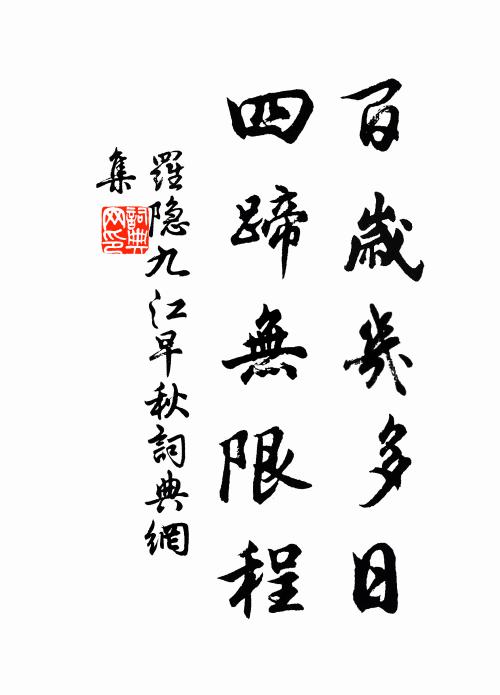 百歲幾多日
四蹄無限程
羅隐九江早秋詞典網
集
詞典
网印